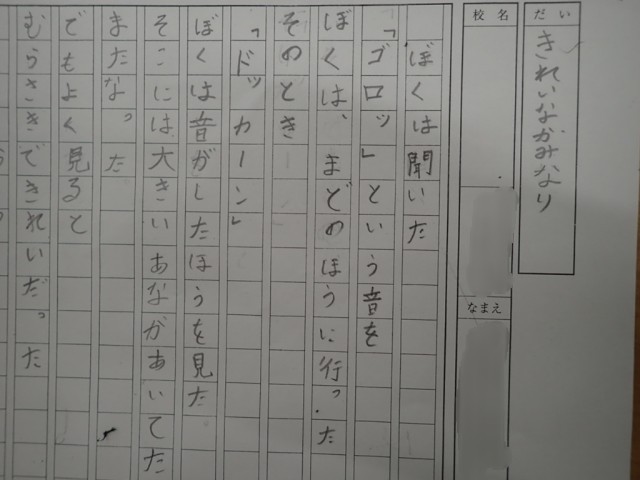 だい
きれいなかみなり
校名
なまえ
ぼくは聞いた
「ゴロッ」という音を
ぼくは、まどのほうに行った
そのとき
「ドッカーン」
ぼくは音がしたほうを見た
そこには大きいあながあいてた
またなった
でもよく見ると
むらさきできれいだった